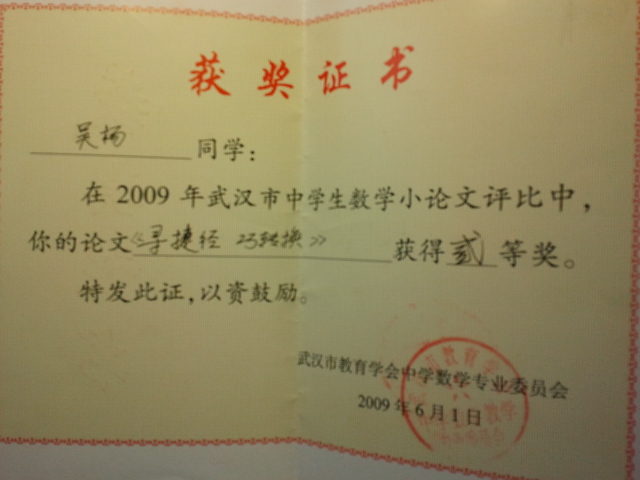 获奖证书
吴杨 同学：
在2009年武汉市中学生数学小论文评比中，
你的论文《寻捷径 巧转换》获得贰等奖。
特发此证，以资鼓励。
武汉市教育学会中学数学专业委员会
2009年6月1日